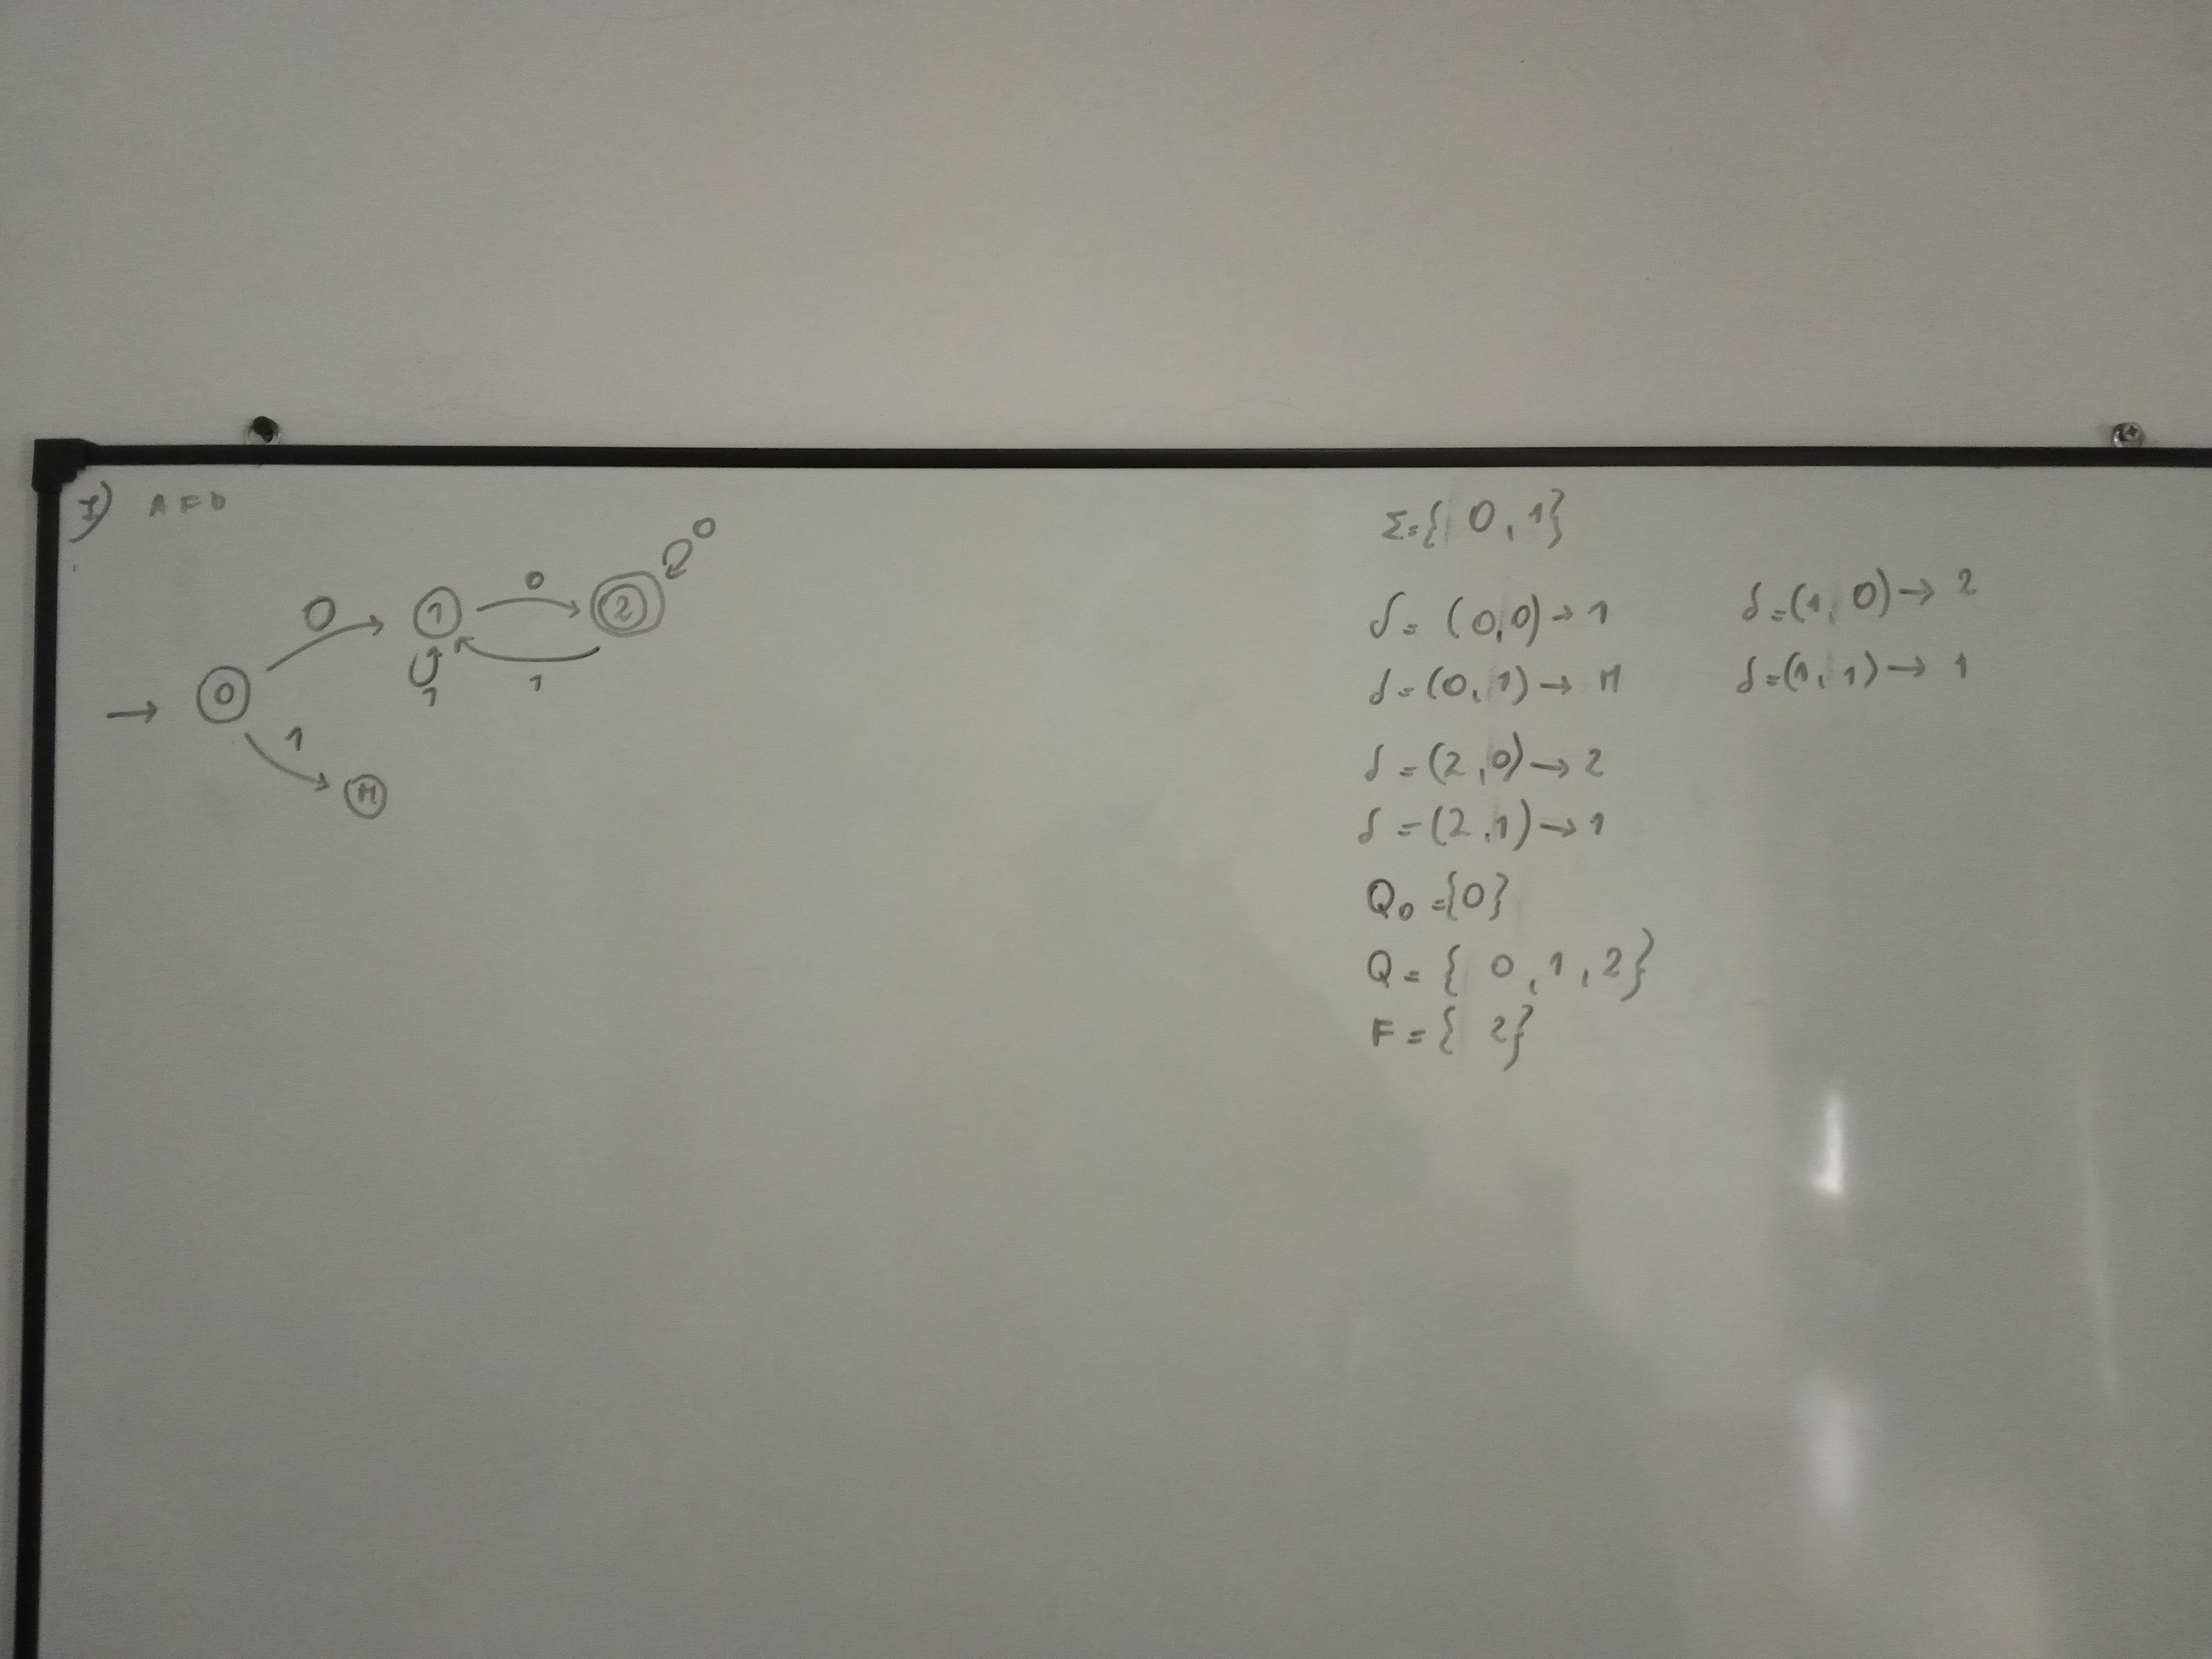 I) AFD
0
0
0
1
2
0
1
1
1
M
Σ={ 0, 1}
δ= (0,0)→1
δ=(0,1)→ M
δ=(2,0)→2
δ=(2,1)→1
Q0={0}
Q={ 0,1,2}
F={ 2}
δ=(1,0)→2
δ=(1,1)→1